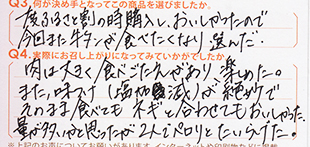 Q3.何が決め手となってこの商品を選びましたか。
度ふるさと割の時購入し、おいしかったので
今回また牛タンが食べたくなり選んだ。
Q4.実際にお召し上がりになってみていかがでしたか。
肉は大きく食べごたえがあり楽めた。
また、味つけ(塩加減)が絶妙で
そのまま食べてもネギと合わせてもおいしかった。
量が多いかと思ったが2人でペロリとたいらげた。